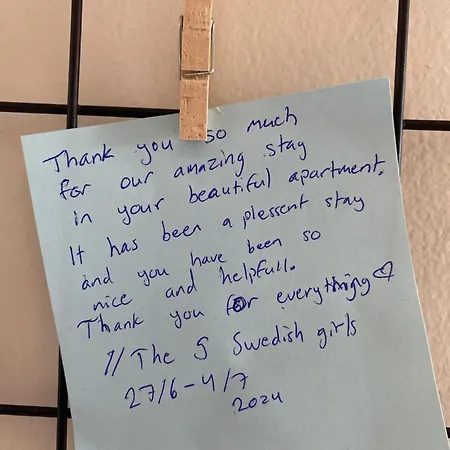 Thank you so much
for our amazing stay
in your beautiful apartment.
It has been a plessent stay
and you have been so
nice and helpfull.
Thank you for everything ♡
// The 5 Swedish girls
27/6 - 4/7
2024